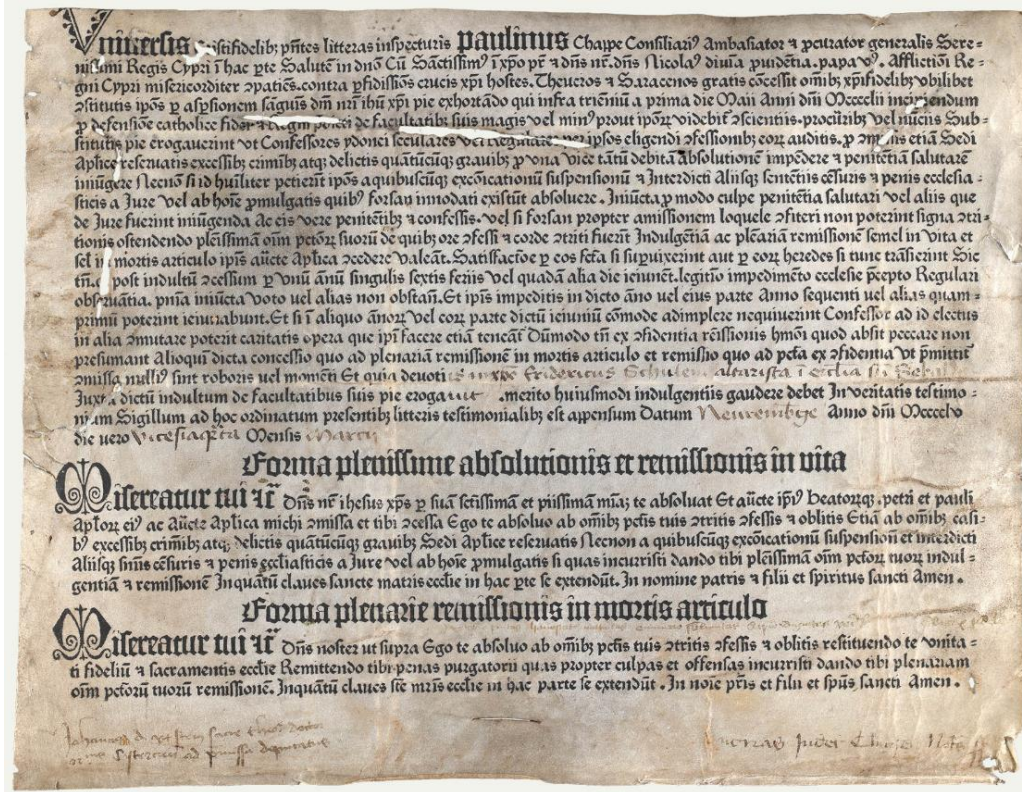 Vniuersis xpistifidelibꝫ pñtes litteras inspecturis Paulinus Chappe Consiliariꝰ Ambasiator ⁊ ꝓcurator generalis Sere=
nissimi Regis Cypri ĩ hac ꝑte Salutē in dño Cũ Sanctissimꝰ ĩ xpõ pr̃ ⁊ dñs nr̃. dñs Nicolaꝰ diuĩa ꝓuidẽtia. papa vꝰ. Afflictiõi Re=
gni Cypri misericorditer ꝯpatiẽs. contra ꝑfidissiõs crucis xp̃i hostes. Theucros ⁊ Saracenos gratis cõcessit om̃ibꝫ xp̃ifidelibꝫ vbilibet
ꝯstitutis ip̃os ꝑ asꝑsionem sãguis dñi nr̃i ihũ xp̃i pie exhortãdo qui infra triẽniũ a prima die Maii Anni dñi Mcccclii incipiendum
ꝓ defensiõe catholice fidei ⁊ Regni de facultatibꝫ suis magis vel minꝰ prout ip̃oꝝ videbit̃ ꝯscientiis. procuꝛibꝫ vel nũciis Sub=
stitutis pie erogauerint vt Confessores ydonei seculares vel Regulares per ipsos eligendi ꝯfessionibꝫ eoꝝ auditis. ꝓ etiã Sedi
Aplice reseruatis excessibꝫ crimĩbꝫ atqꝫ delictis quãtũcũqꝫ grauibꝫ ꝓ vna vice tãtũ debitã absolutionẽ impẽdere ⁊ penitẽtiã salutarẽ
iniũgere Necnõ si id huĩliter petierĩt ip̃os a quibuscũqꝫ excõicationũ suspensionũ ⁊ Interdicti Aliisqꝫ sentẽtiis cẽsuris ⁊ penis ecclesia=
sticis a Jure vel ab hoĩe ꝓmulgatis quibꝫ forsan innodati existũt absoluere. Iniũcta ꝓ modo culpe penitẽtia salutari vel aliis que
de Jure fuerint iniũgenda Ac eis vere penitẽtibꝫ ⁊ confessis. vel si forsan propter amissionem loquele ꝯfiteri non poterint signa ꝯtri=
tionis ostendendo pleĩssimã oĩm pctõꝝ suorũ de quibꝫ ore ꝯfessi ⁊ corde ꝯtriti fuerĩt Indulgẽtiã ac plenariã remissionẽ semel in vita et
sel in mortis articulo ipĩs aũcte Aplica ꝯcedere valeãt. Satisfactõe ꝑ eos fcta si suꝑuixerint aut ꝑ eoꝝ heredes si tunc trãsierint Sic
tñ. ꝙ post indultũ ꝯcessum ꝑ vnũ ãnũ singulis sextis feriis vel quadã alia die ieiunẽt. legitĩo impedimẽto ecclesie p̃cepto Regulari
obseruãtia. pnĩa iniũcta voto vel alias non obstañ. Et ipĩs impeditis in dicto ãno vel eius parte Anno sequenti vel alias quam=
primũ poterint ieiunabunt. Et si ĩ aliquo ãnoꝝ vel eoꝝ parte dictũ ieiuniũ cõmode adimplere nequiuerint Confessor ad id electus
in alia ꝯmutare poterit caritatis opera que ipĩ facere etiã teneãt̃ Dũmodo tñ ex ꝯfidentia rẽissionis hmõi quod absit peccare non
presumant Alioqui dicta concessio quo ad plenariã remissionẽ in mortis articulo et remissio quo ad pctã ex ꝯfidentia vt p̃mittit̃
ꝯmissa nulliꝰ sint roboris uel momẽti Et quia deuoti in xp̃o Fridericus Schulem altarista ĩ ecclia
Juxta dictũ indultum de facultatibus suis pie erogauit. merito huiusmodi indulgentiis gaudere debet In veritatis testimo=
nium Sigillum ad hoc ordinatum presentibꝫ litteris testimonialibꝫ est appensum Datum Nuremberge Anno dñi Mcccclv
die vero Mensis Marcii
Forma plenissime absolutionis et remissionis in vita
Misereatur tui ⁊c̃ Dñs nr̃ ihesus xp̃s ꝑ suã sctissimã et piissimã mĩaꝫ te absoluat Et aũcte ip̃iꝰ beatorũqꝫ. petri et pauli
Aplõꝝ eiꝰ ac aũcte Aplica michi ꝯmissa et tibi ꝯcessa Ego te absoluo ab om̃ibꝫ pctĩs tuis ꝯtritis ꝯfessis ⁊ oblitis Etiã ab om̃ibꝫ casi=
bꝰ excessibꝫ crimĩbꝫ atqꝫ delictis quãtũcũqꝫ grauibꝫ Sedi Aplice reseruatis Necnon a quibuscũqꝫ excõicationũ suspensionũ et interdicti
Aliisqꝫ sñiis cẽsuris ⁊ penis ecclasticis a Jure vel ab hoĩe ꝓmulgatis si quas incurristi dando tibi pleĩssimã oĩm pctõꝝ tuoꝝ indul=
gentiã ⁊ remissionẽ Inquãtũ claues sancte matris ecclie in hac ꝑte se extendũt. In nomine patris ⁊ filii et spiritus sancti Amen.
Forma plenarie remissionis in mortis articulo
Misereatur tui ⁊c̃ Dñs noster ut supra Ego te absoluo ab om̃ibꝫ pctĩs tuis ꝯtritis ꝯfessis ⁊ oblitis restituendo te vnita=
ti fideliũ ⁊ sacramentis ecclie Remittendo tibi penas purgatorii quas propter culpas et offensas incurristi dando tibi plenariam
oĩm pctõrũ tuorũ remissionẽ. Inquãtũ claues stẽ mr̃is ecclie in hac parte se extendũt. In noĩe pr̃is et filii et spũs sancti Amen.
Johannes de sacre doctor
ad deputatus